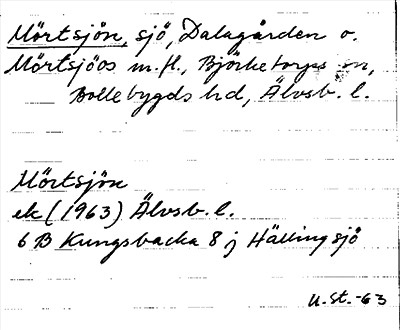 Mörtsjön, sjö, Dalagården o.
Mörtsjöås m.fl., Björketorps sn,
Bollebygds hd, Älvsb. l.
Mörtsjön
ek (1963) Älvsb. l.
6 B Kungsbacka 8 j Hällingsjö
U. St. -63